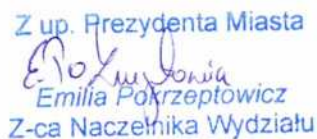 Z up. Prezydenta Miasta
Emilia Pokrzeptowicz
Z-ca Naczelnika Wydziału